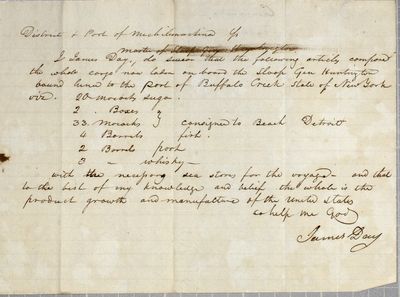 District & Port of Michilimackinac
I James Day, do swear that the following articles compose
the whole cargo now laden on board the Sloop Gen Huntington
bound hence to the port of Buffalo Creek State of New York
20 mococks sugar.
2 . Boxes
33 Mococks consigned to Beach Detroit
4 Barrels fish.
2 Barrels pork
3 " whisky -
with the necessary sea stores for the voyage - and that
to the best of my knowledge and belief the whole is the
product growth and manufacture of the United States
so help me God
James Day